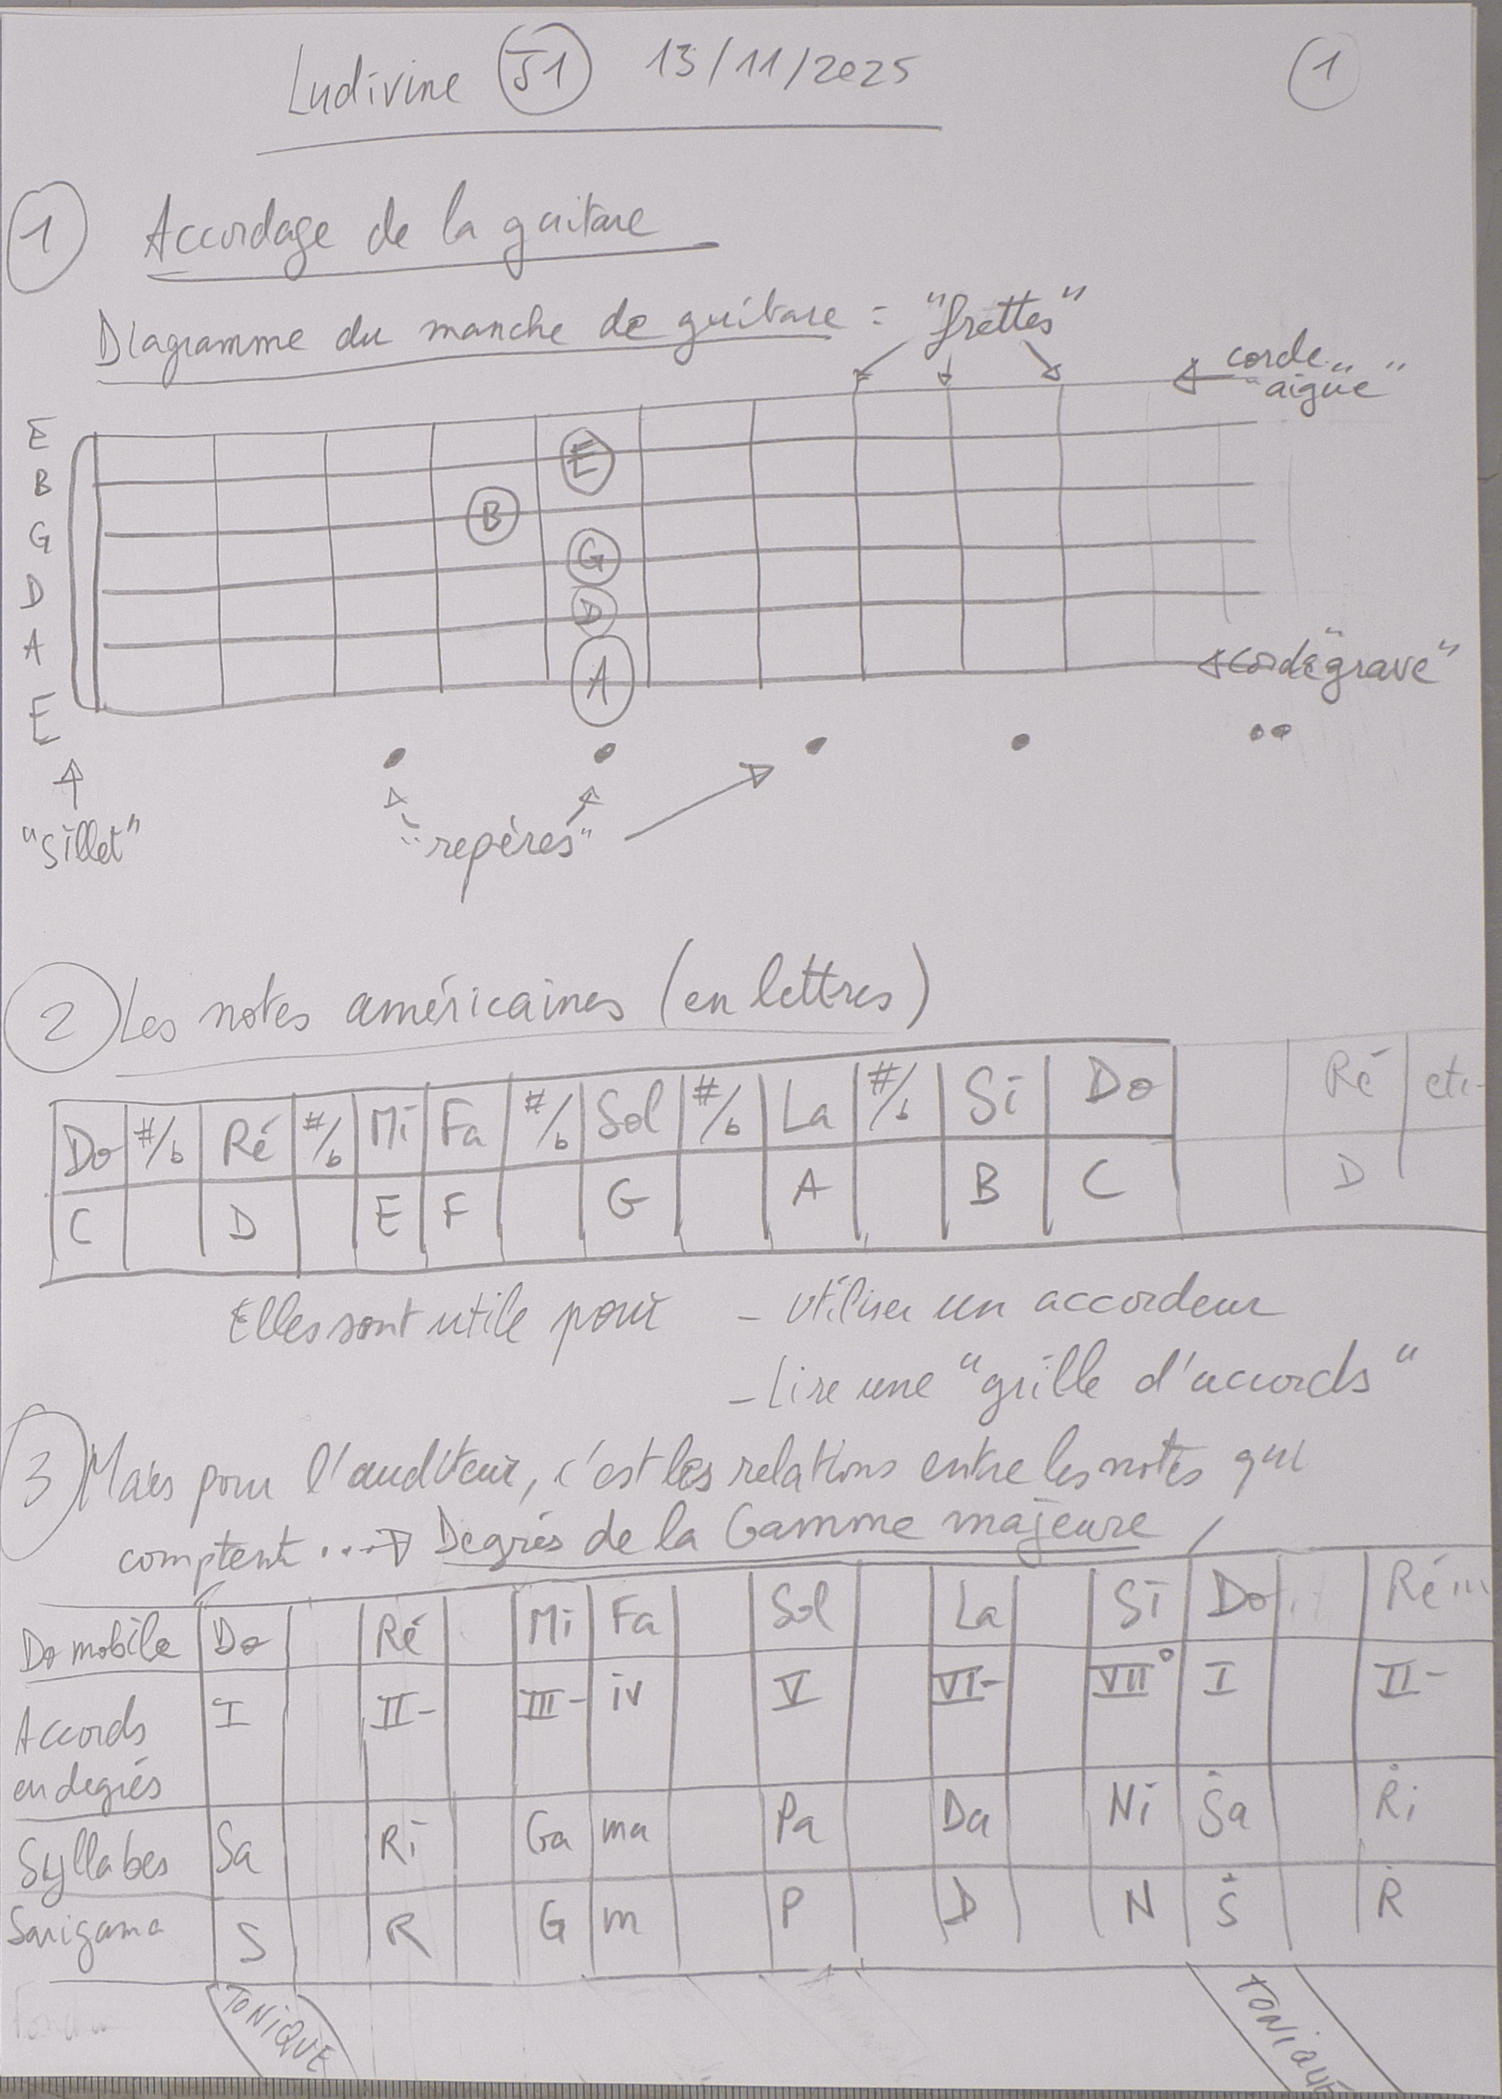 Ludivine J1 13/11/2025
1
1 Accordage de la guitare
Diagramme du manche de guitare : "frettes"
corde "aigüe"
E
B
G
D
A
E
E
B
G
D
A
corde "grave"
"sillet"
"repères"
2 Les notes américaines (en lettres)
Do #/b Ré #/b Mi Fa #/b Sol #/b La #/b Si Do Ré etc
C D E F G A B C D
Elles sont utile pour - utiliser un accordeur
- Lire une "grille d'accords"
3 Mais pour l'auditeur, c'est les relations entre les notes qui
comptent ... → Degrés de la Gamme majeure
Do mobile Do Ré Mi Fa Sol La Si Do Ré ...
Accords en degrés I II- III- iv V VI- VII° I II-
Syllabes Sa Ri Ga ma Pa Da Ni Ṡa Ṙi
Sarigama S R G m P D N Ṡ Ṙ
TONIQUE TONIQUE